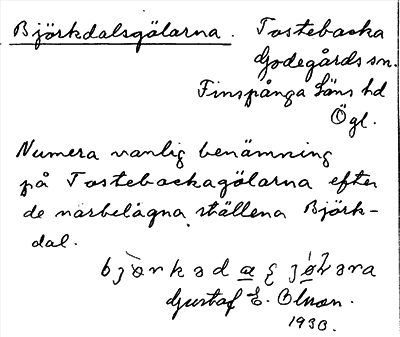 Björkdalsgölarna. Tostebacka
Godegårds sn.
Finspånga läns hd
Ögl.
Numera vanlig benämning
på Tostebackagölarna efter
de närbelägna ställena Björk-
dal.
Gustaf E. Olsson.
1930.